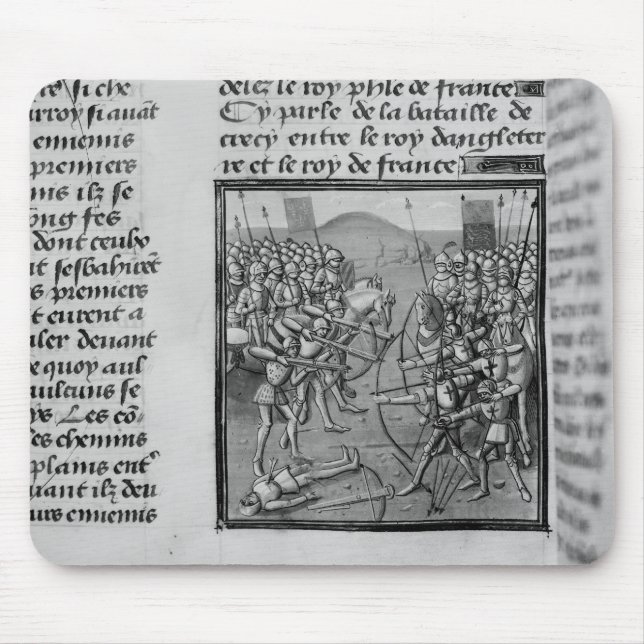 si che
rroy si auãt
ennemis
premiers
mis ilz se
ong ses
dont ceulx
t sesbahirẽt
s premiers
t eurent a
uler deuant
e quoy aul
uulcuns se
ys Les cõ
es chemins
plains entʼ
uant ilz deu
urs ennemis
delez le roy phle de france
Cy parle de la bataille de
crecy entre le roy dangleter
re et le roy de france